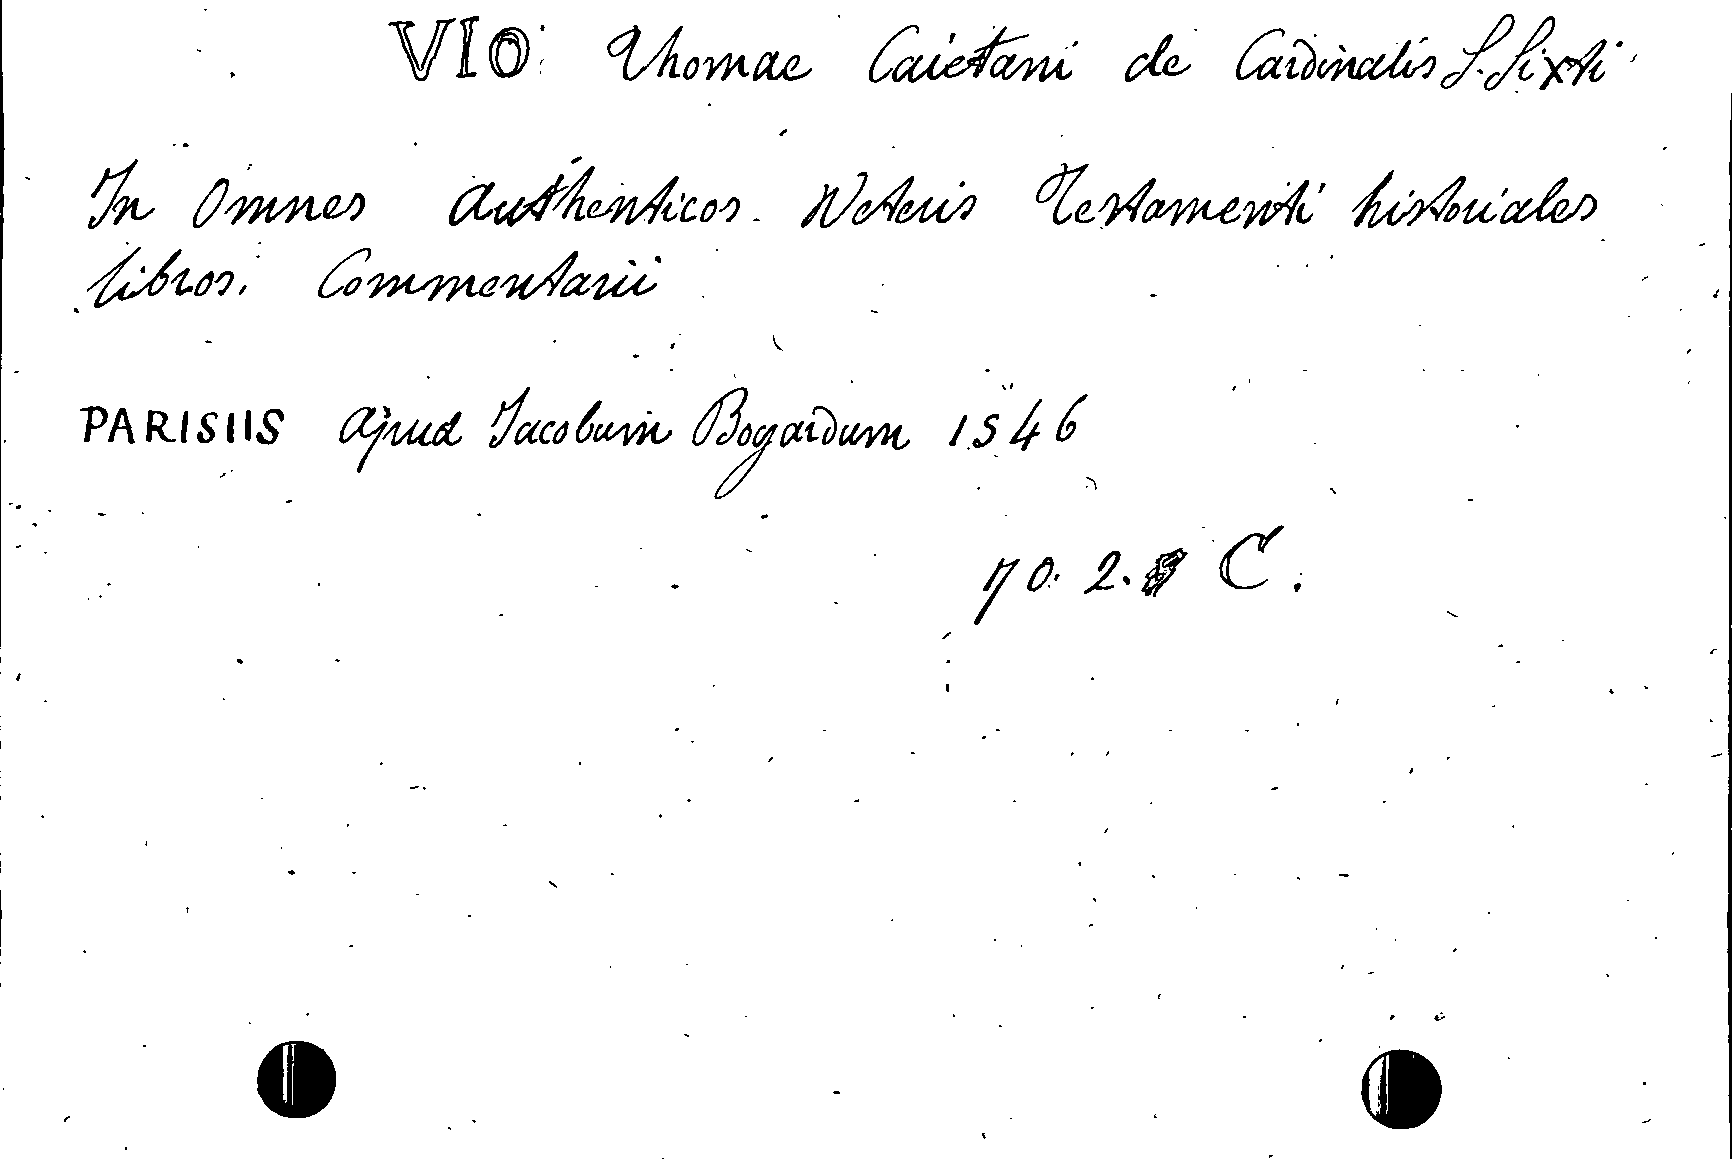 VIO Thomae Caietani de Cardinalis S. Sixti
In Omnes authenticos Veteris Testamenti historiales
libros. Commentarii
PARISIIS apud Jacobum Bogardum 1546
70. 2. C.